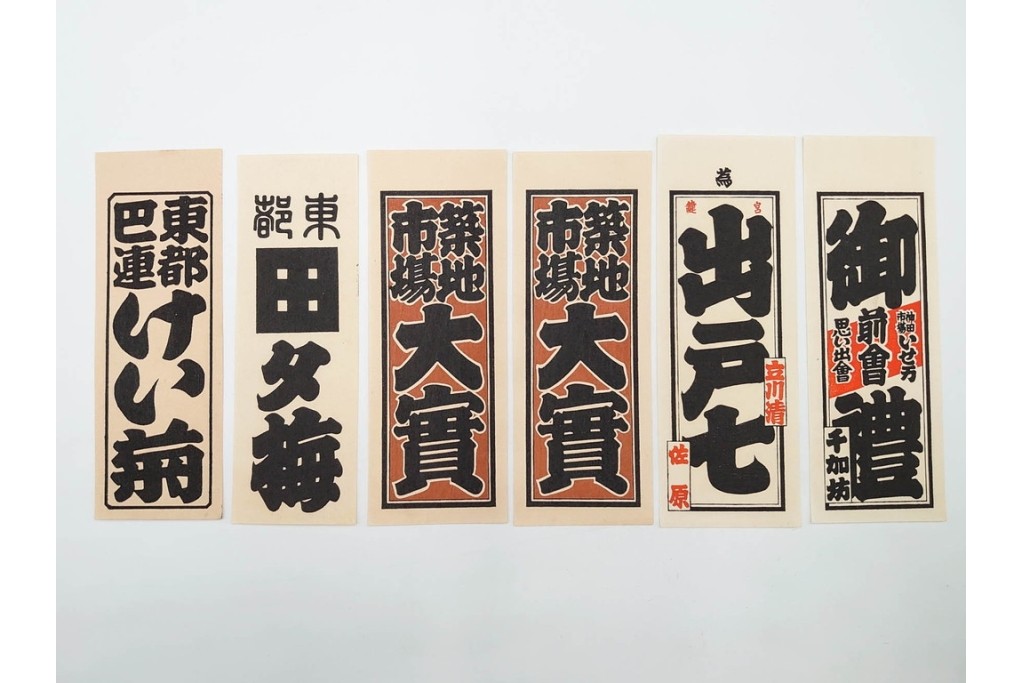 東都
巴連
けい
東都
田
夕梅
築地
市場
大實
築地
市場
大實
為
宮
出戸七
立川清
佐原
御禮
神田
市場
いせ万
前會
思い出會
千加坊